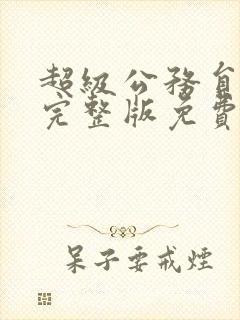 超級公務員
完整版免費
呆子要戒煙